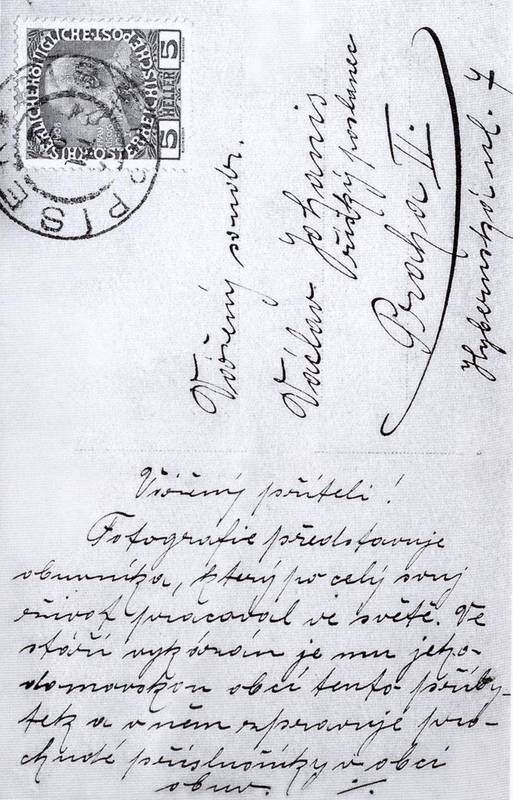 KAISERLICHE KÖNIGLICHE ÖSTERREICHISCHE POST
5 HELLER 5
PISEK
Vážený soudr.
Václav Johanis
říšský poslanec
Praha II.
Hybernská ul. 7
Vážený příteli!
Fotografie představuje
obuvníka, který po celý svuj
život pracoval ve světě. Ve
stáří vykázán je mu jeho
domovskou obcí tento příby-
tek a v něm zpravuje pro
chudé příslušníky v obci
obuv.